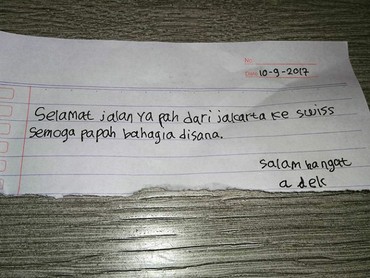 No:
Date: 10-9-2017
Selamat jalan ya pah dari jakarta ke swiss
semoga papah bahagia disana.
salam hangat
adek